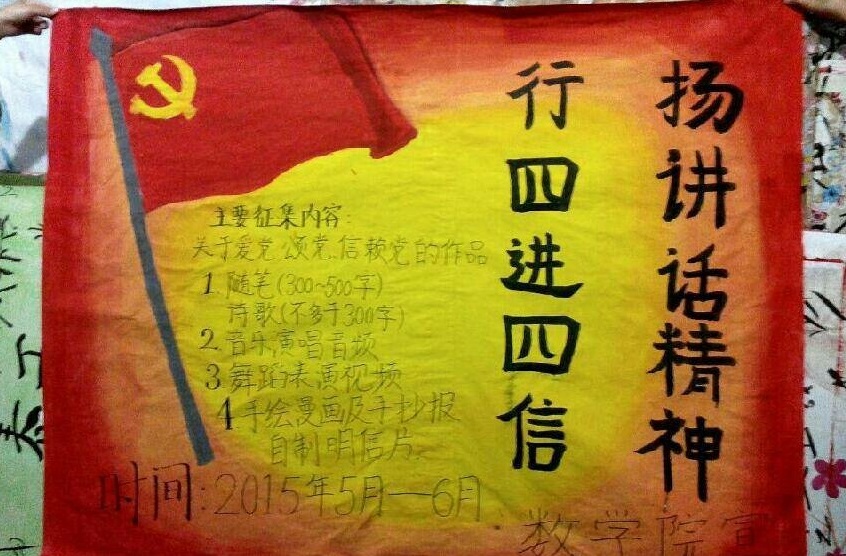 扬讲话精神
行四进四信
主要征集内容:
关于爱党、颂党、信赖党的作品
1. 随笔(300~500字)
诗歌(不多于300字)
2. 音乐演唱音频
3 舞蹈表演视频
4 手绘漫画及手抄报
自制明信片。
时间:2015年5月—6月
数学院宣